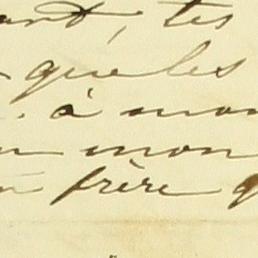 ant, tes
que les
à mon
mon
frère q